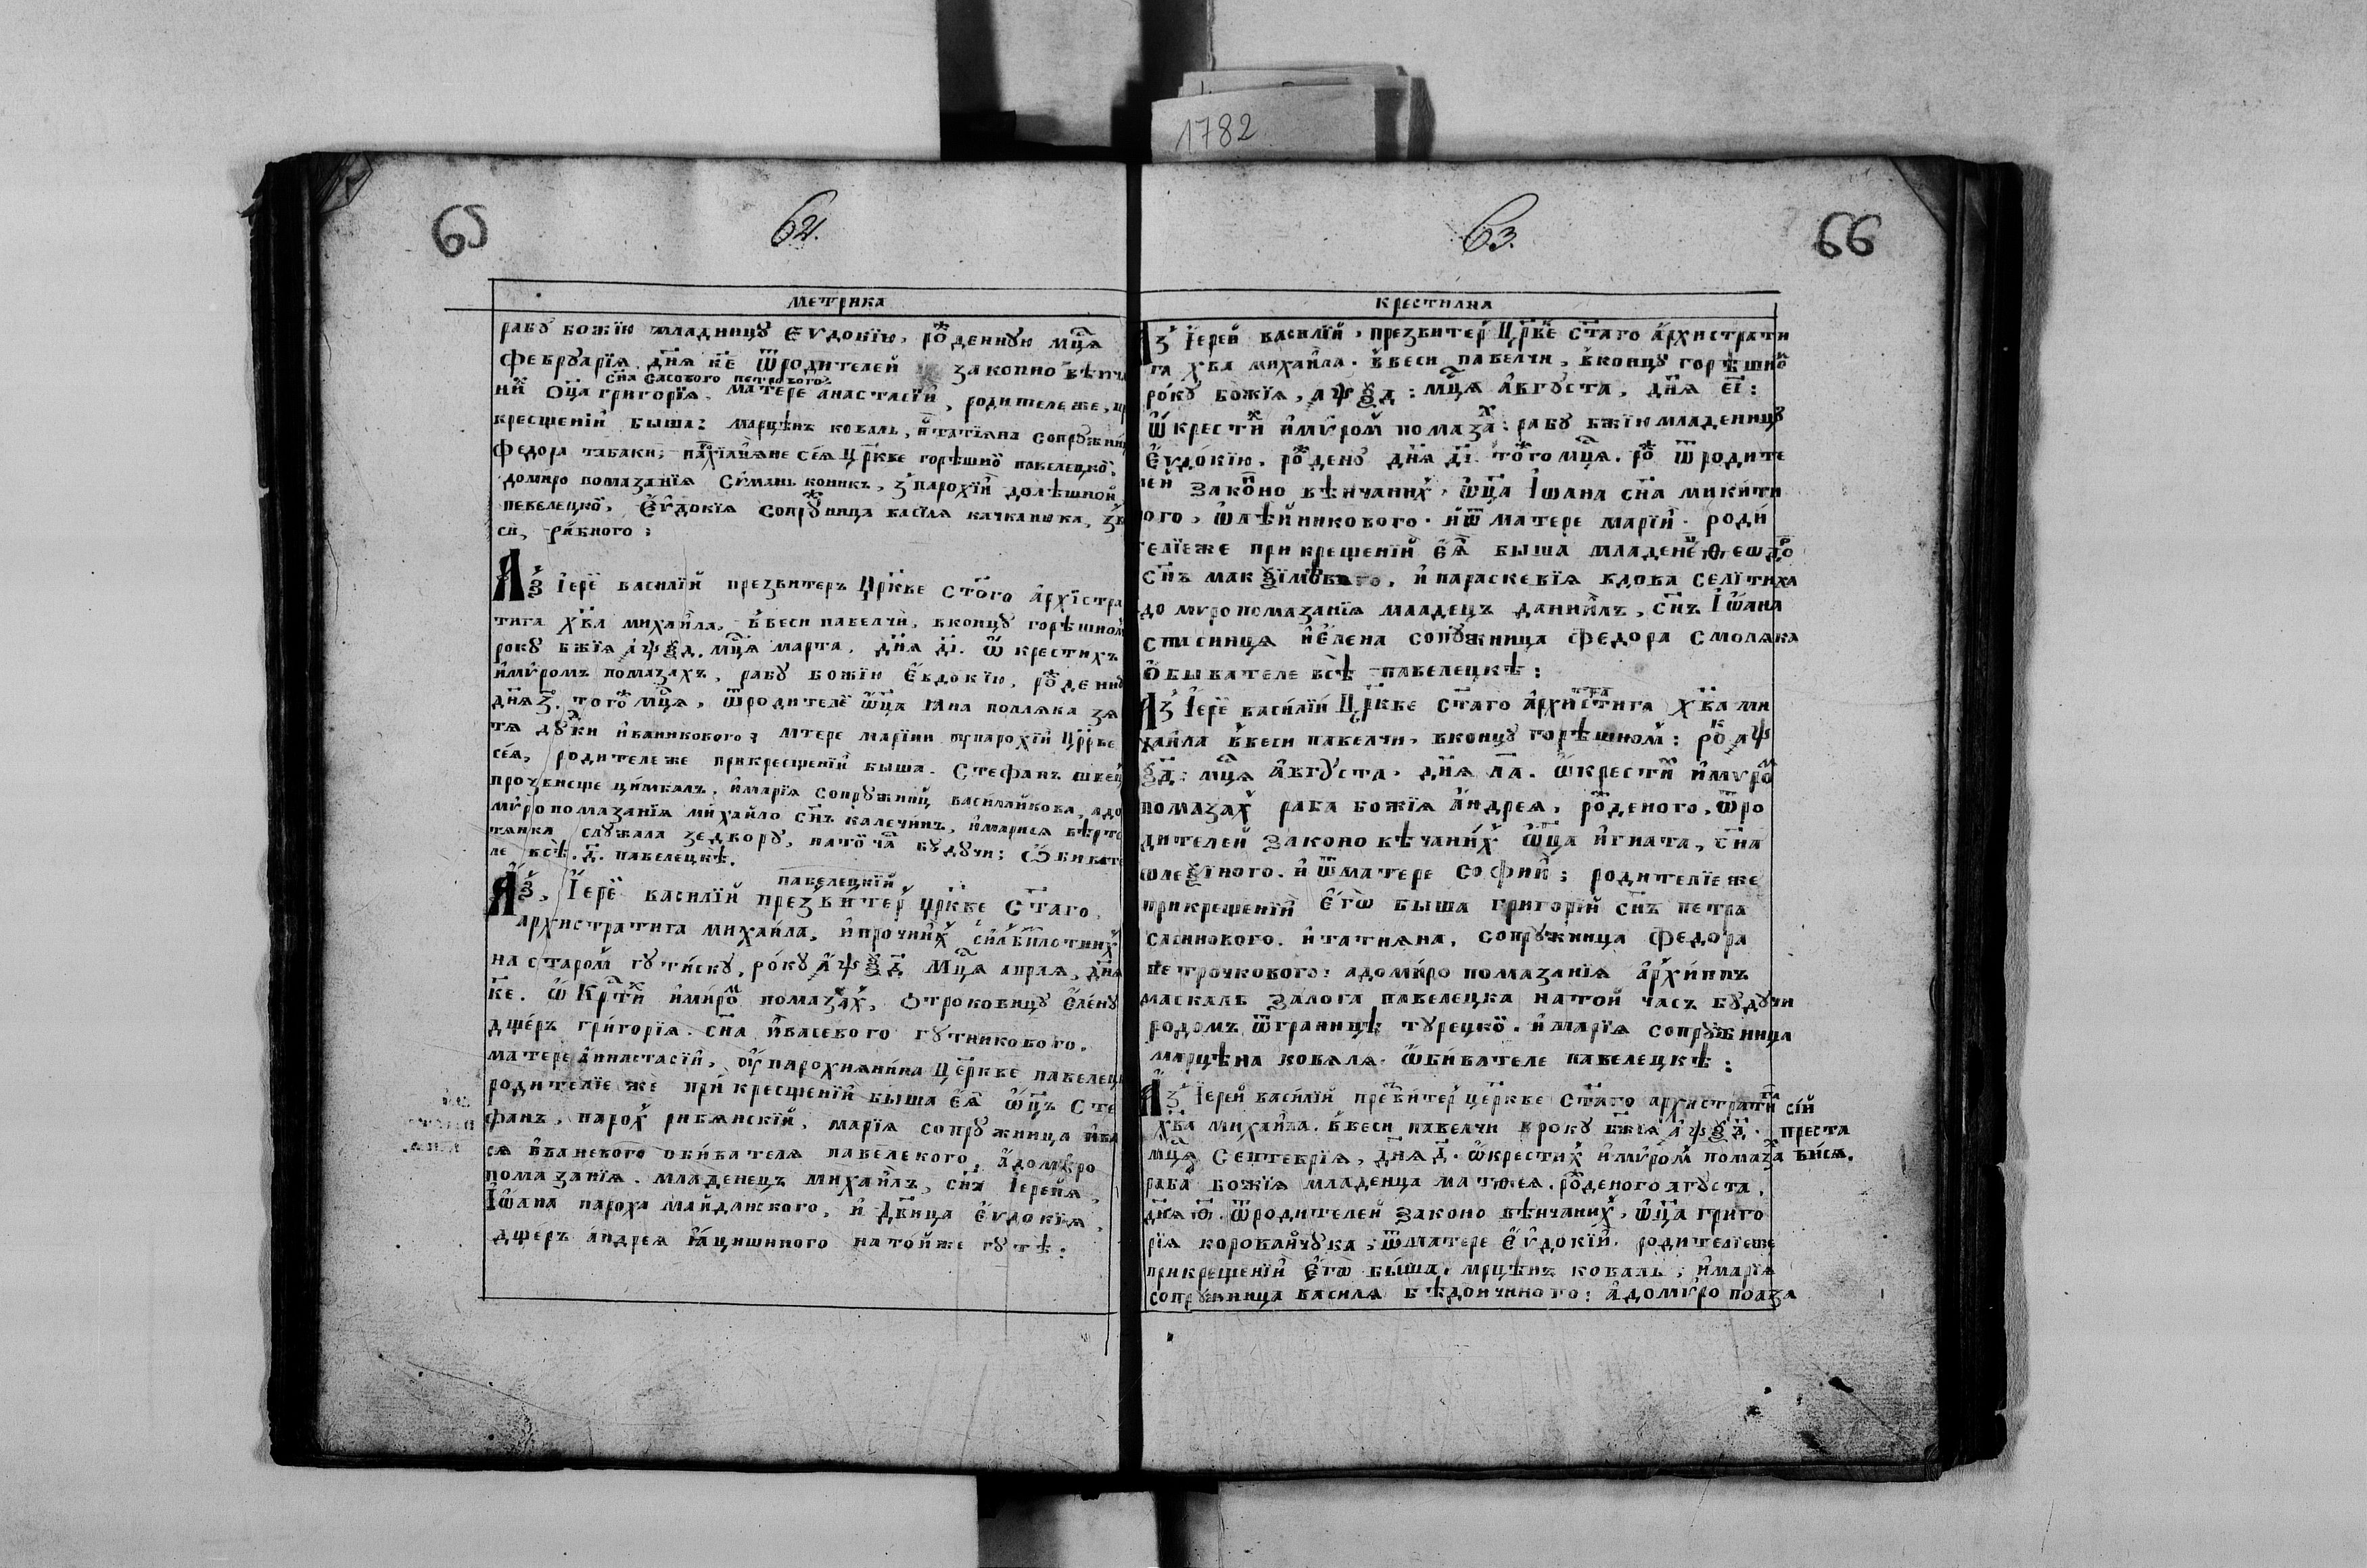 1782
65
62.
метрика
рабꙋ божїю младницꙋ Єѵдокїю, ро҃ денꙋю мц҃а
феврꙋарїѧ дн҃ѧ к҃е ѿродителей законно вѣнча
сн҃а Сасового петрового
ній Оц҃а григорїѧ, матере анастасїи, родителе же, пр
крещенїи быша: марцѣнъ коваль, и татїѧна сопрꙋжни
федора табаки, парохїанѧне сеѧ Цр҃кве горѣшно павелецко,
домиро помазанїѧ Сѵмань коникъ, з парохїи долѣшной
певелецкої, Єѵдокїѧ сопрꙋница васїлѧ качканюка, зв
си, рабного:
Аз Їерей василїй презвитеръ Цр҃кве Ст҃ого Архїстра
тига Хв҃а михаила, Ввеси павелчи, вконцꙋ горѣшном
рокꙋ бж҃їѧ а҂ѱѯд. мц҃ѧ марта, дн҃ѧ д҃і. Ѿ крестихъ
имѵромъ помазахъ, рабꙋ божїю Євдокїю, ро҃ денꙋ
дн҃ѧ з҃. того мц҃ѧ, ѿродителе ѿц҃а Яна полѧка зѧ
тѧ дꙋки иваникового; мтере марїи парохїи Цр҃кве
сеѧ, родителе же прикресщенїи быша. Стефанъ швец
прозвисще цимбалъ, имарїѧ сопрꙋжниц василайкова, адо
мѵро помазанїѧ михайло сн҃ъ калечинъ, имариѧ
слꙋжала зедворꙋ, нато ча҃ бꙋдꙋчи; Обивате
ле всѣ. д҃. павелецкѣ.
павелецкїй
Аз, Їерей василїй презвитер цр҃кве Ст҃аго,
архистратига михаила, ипрочиих сил бесплотних
на старом гꙋтискꙋ, рокꙋ а҂ѱѯд Мц҃ѧ апрлѧ, дн҃ѧ
к҃е. Ѿ Крти имиро помазах, Отроковицꙋ Єленꙋ
дщеръ григорїѧ. сн҃а ивасевого гꙋтникового.
матере аннастасїи, парохиѧнина Це҃ркве павелец
родителїе же при кресщенїи быша єѧ ѿц҃ъ Сте
фанъ, парох рибѧнскїй, марїѧ сопрꙋжница ива
сѧ иваневого обивателѧ павелекого, адомѵро
помазанїѧ. младенецъ михаилъ, сн҃ъ Їерейѧ,
Їѡана пароха майданского, и дв҃ица Єѵдокїѧ,
дщеръ андреѧ Ꙗцишиного на тойже гꙋтѣ:
63.
66
крестилна
Аз Їерей василїй, презвитер Цр҃кве ст҃аго Архистрати
га хв҃а михаила. Ввеси павелчи, вконцꙋ горѣшно
рокꙋ божїѧ, а҂ѱѯд: мц҃ѧ Авгꙋста, дн҃ѧ е҃і:
Ѿкрести имѵром помаза: рабꙋ бж҃їю младеницꙋ
Єѵдокїю. ро҃ денꙋ дн҃ѧ д҃і. того мц҃ѧ. ро҃ ѿродите
лей законо вѣнчаних, ѿц҃а Їѡана сн҃а микити
ого, ѡлѣйникового. иѿ матере марїи. роди
телїеже при крещенїи єѧ быша младене ѳеѡдо
сн҃ъ макѯїмового, и параскевїѧ вдова селїтиха
до мѵро помазанїѧ младецъ даниилъ, сн҃ъ Їѡана
и Єлена сопꙋжница федора смолѧка
Обывателе всѣ павелецкѣ:
Аз Їерей василїй Цр҃кве ст҃аго архистратига Хв҃а ми
хаила Ввеси павелчи, вконцꙋ горѣшном: ро҃к а҂ѱ
ѯд: мц҃ѧ Авгꙋста, дн҃ѧ л҃а. Ѿкрести имѵро
помазах раба божїѧ Андреѧ, ро҃деного, ѿро
дителей законо вѣчаних Ѿц҃а игната, сн҃а
ѡлеѯїного. и ѿматере софии; родителїеже
прикрещенїи Єгѡ быша григорїй сн҃ъ петра
Сасинового. и татиѧна, сопрꙋжница федора
петрочкового: адомиро помазанїѧ архипъ
маскаль залога павелецка натой часъ бꙋдꙋчи
родомъ ѿграницѣ тꙋрецко. и марїѧ сопрꙋжница
марцѣна ковалѧ. ѿбивателе павелецкѣ:
Аз Їерей василїй превитер це҃ркве ст҃аго архистрати
сїй преста висѧ.
хв҃а михаила. Ввеси павелчи врокꙋ бж҃їѧ а҂ѱѯд.
мц҃ѧ Септеврїѧ, дн҃ѧ д҃. Ѿкрестих имѵром помаза
раба божїѧ младенца матѳеѧ. ро҃деного агꙋста,
дн҃ѧ ѿродителей законо вѣнчаних, ѿц҃а григо
рїѧ коровайчꙋка; ѿматере Єѵдокїи. родителїеже
прикрещенїи Єгѡ быша, мрцѣнъ коваль, имарїѧ
сопрꙋжница василѧ бѣдончиного: адомѵро поаза